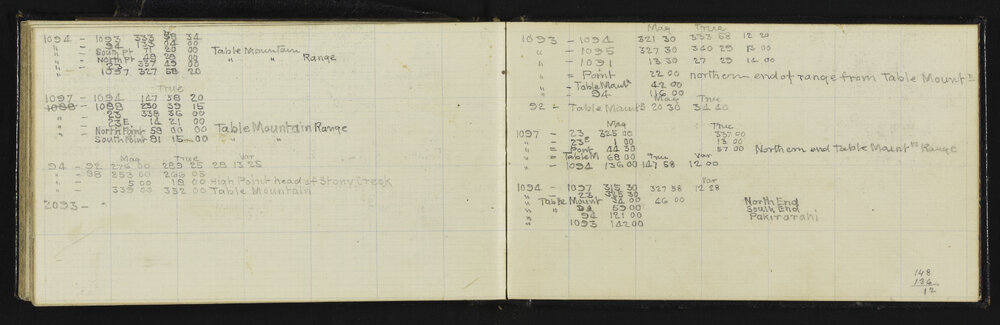 1094 - 1093 333 58 34
" 94 133 04 00
" South Pt 71 20 00 Table Mountain
" North Pt 49 29 00 " " Range
" 23 337 49 00
" 1097 327 58 20
True
1097 - 1094 147 58 20
" 1098 230 39 15
" 23 338 36 00
" 23E 14 21 00
" North Point 59 00 00 Table Mountain Range
" South Point 91 15 - 00 " "
Mag True Var
94 - 92 276 00 289 25 25 13 25
" - 98 253 00 266 05
" - 5 00 18 00 High Point head of Stony Creek
" - 339 00 352 00 Table Mountain
2093 -
Mag True
1093 - 1094 321 30 333 58 12 20
" - 1095 327 30 340 29 13 00
" - 1091 13 30 27 29 14 00
" = Point 22 00 northern end of range from Table Mount n
" - Table Maunt 42 00
" - 94 116 00
Mag True
92 - Table Mount n 20 30 34 40
Mag True
1097 - 23 325 00 337 00
" 23E 1 00 13 00
" = Pont 44 30 57 00 Northern end Table Maunt ns Range
" = Table M 68 00 True Var
" - 1094 136 00 147 58 12 00
Var
1094 - 1097 315 30 327 58 12 28
" 23 325 30
" Table Mount 34 00 46 00 North End
" " 59 00 South End
" 94 121 00 Pakirarahi
" 1093 142 00
148
136
12